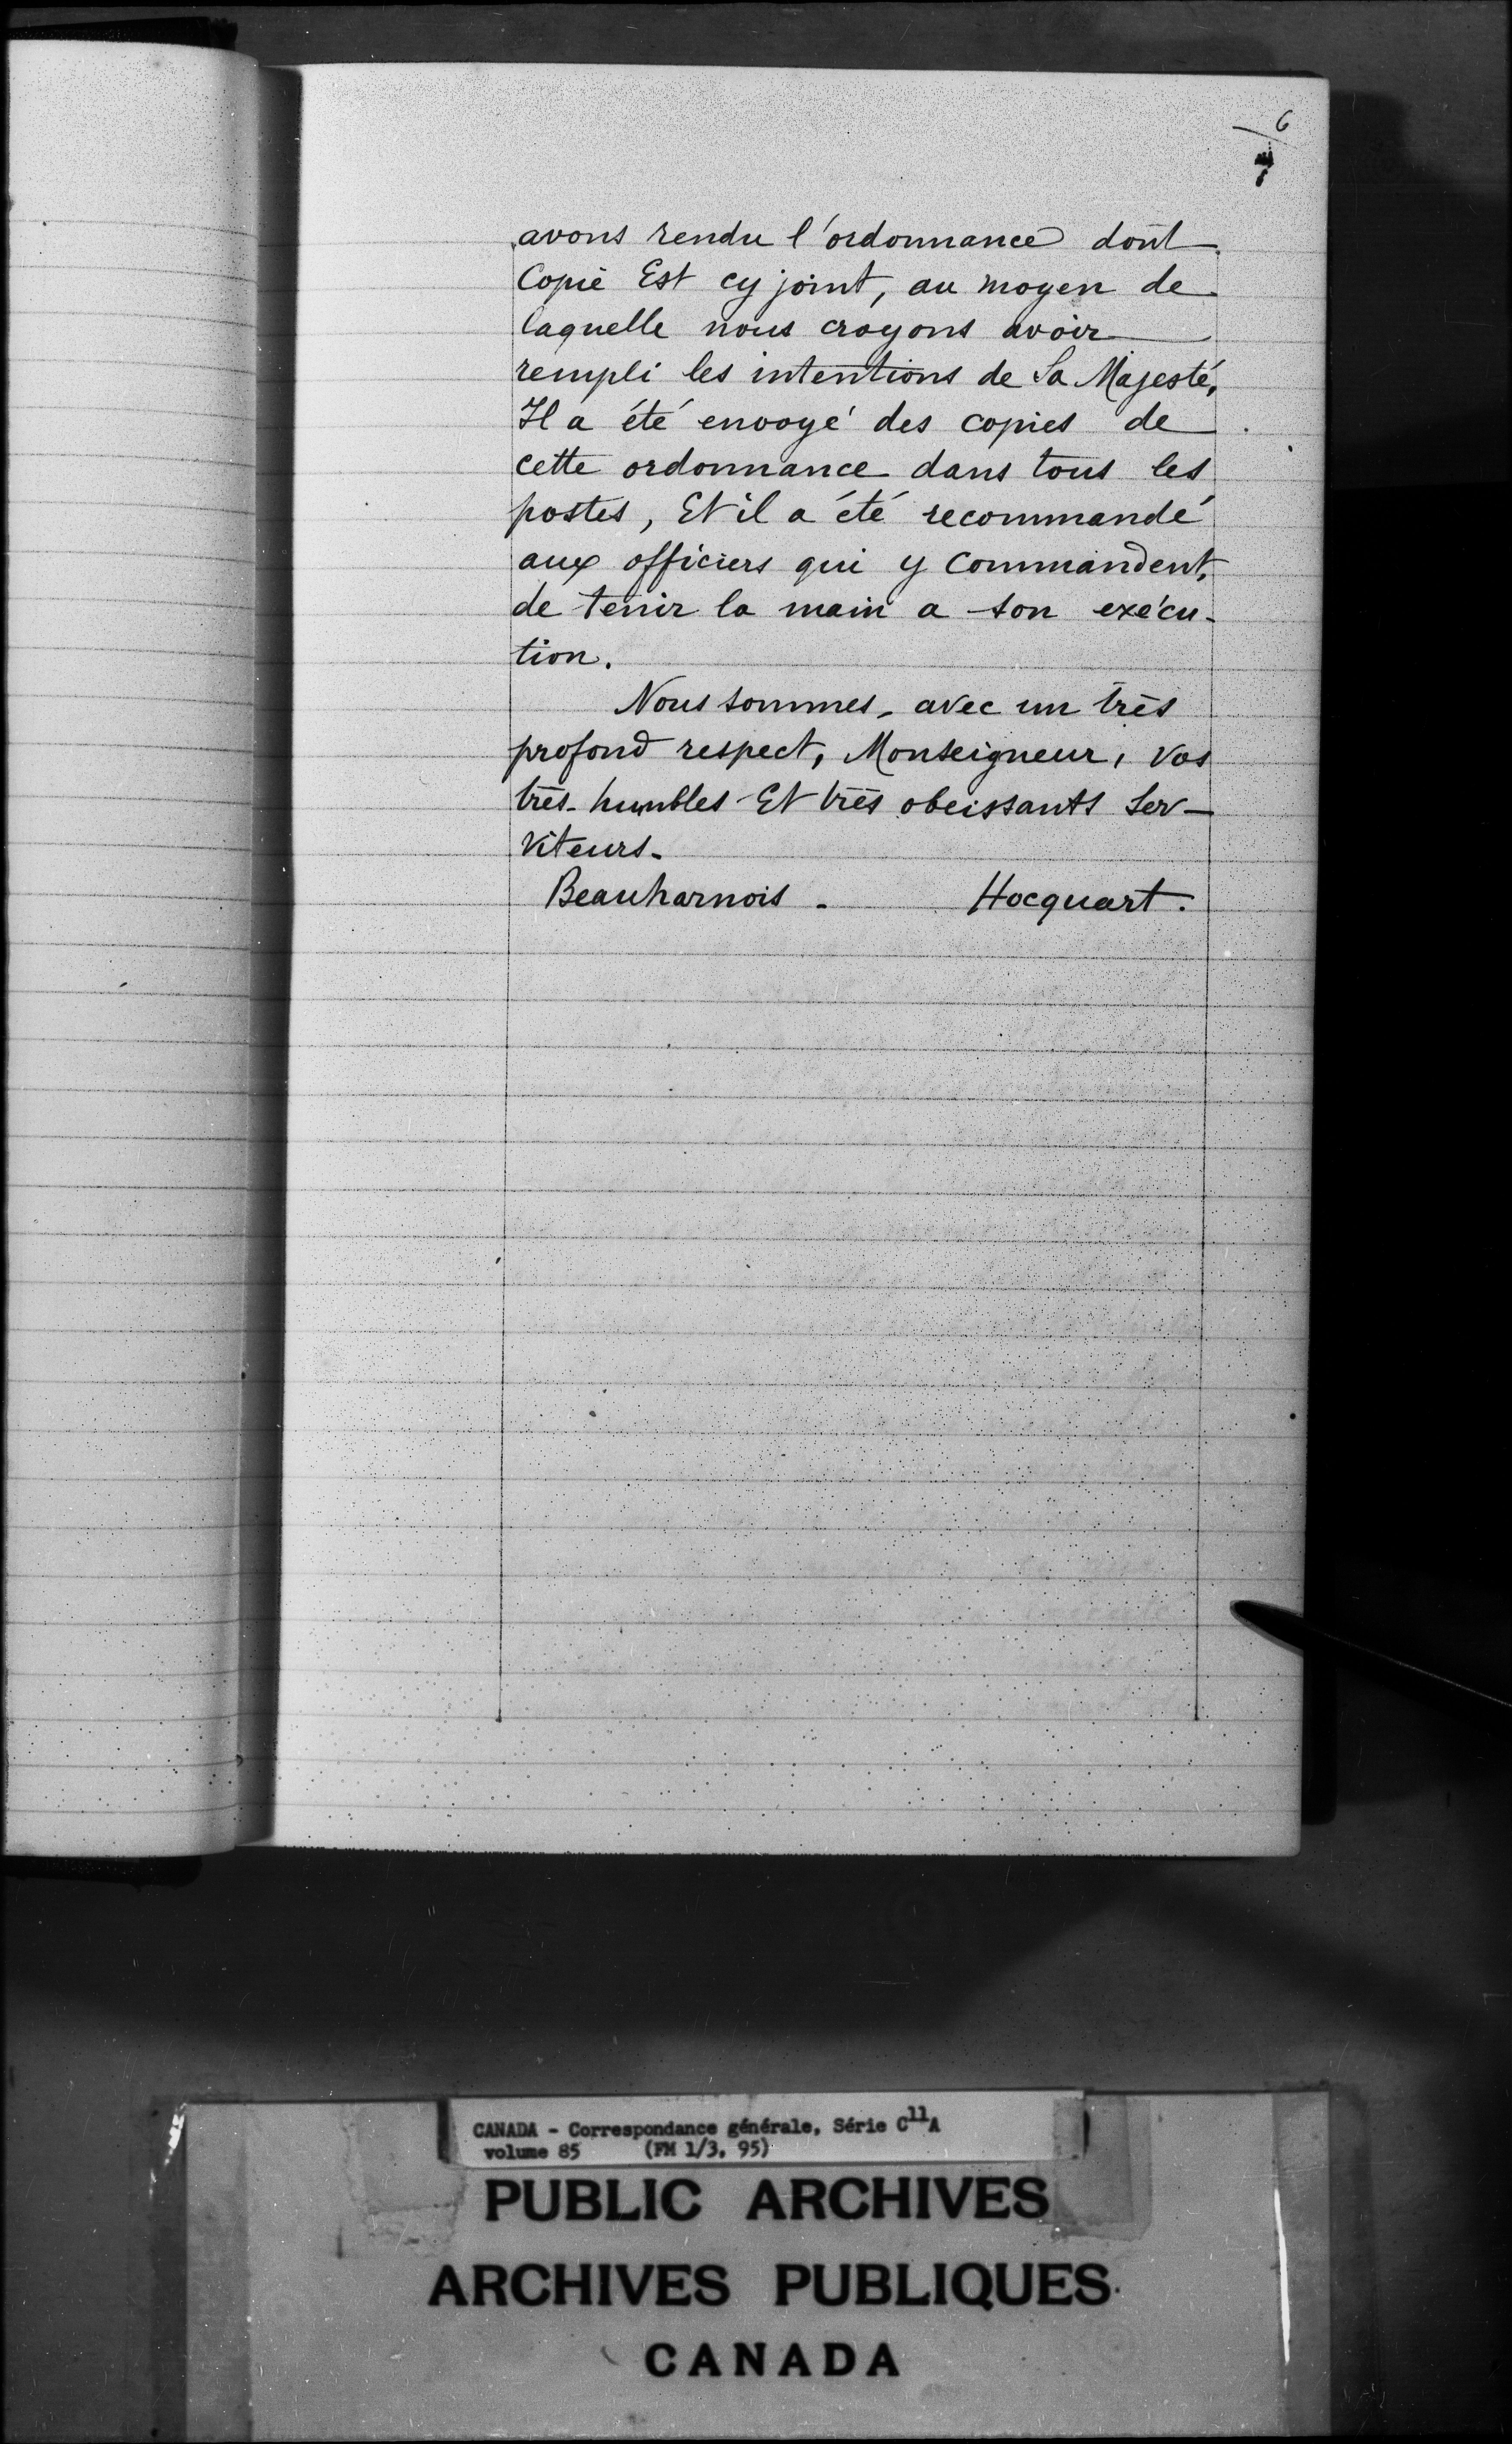 6
avons rendu l'ordonnance dont
Copie Est cy joint, au moyen de
laquelle nous croyons avoir
rempli les intentions de Sa Majesté,
Il a été envoyé des copies de
cette ordonnance dans tous les
postes, Et il a été recommandé
aux officiers qui y commandent,
de tenir la main a son exécu-
tion.
Nous sommes, avec un très
profond respect, Monseigneur, vos
très-humbles Et très obeissants ser-
viteurs.
Beauharnois. Hocquart.
CANADA - Correspondance générale, Série C11A
volume 85 (FM 1/3, 95)
PUBLIC ARCHIVES
ARCHIVES PUBLIQUES
CANADA